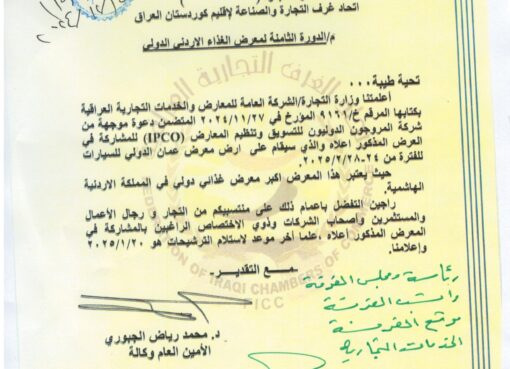 اتحاد غرف التجارة والصناعة لإقليم كوردستان العراق
م/الدورة الثامنة لمعرض الغذاء الاردني الدولي
تحية طيبة ...
أعلمتنا وزارة التجارة/الشركة العامة للمعارض والخدمات التجارية العراقية
بكتابها المرقم خ/٩١٦١ المؤرخ في ٢٠٢٤/١١/٢٧ المتضمن دعوة موجهة من
شركة المروجون الدوليون للتسويق وتنظيم المعارض (IPCO) للمشاركة في
العرض المذكور اعلاه والذي سيقام على ارض معرض عمان الدولي للسيارات
للفترة من ٢٤-٢٠٢٥/٢/٢٨.
حيث يعتبر هذا المعرض اكبر معرض غذائي دولي في المملكة الاردنية
الهاشمية.
راجين التفضل باعمام ذلك على منتسبيكم من التجار و رجال الأعمال
والمستثمرين وأصحاب الشركات وذوي الاختصاص الراغبين بالمشاركة في
المعرض المذكور أعلاه ،علما آخر موعد لاستلام الترشيحات هو ٢٠٢٥/١/٢٠
وإعلامنا.
مع التقدير.
د. محمد رياض الجبوري
الأمين العام وكالة
رئاسة ومجلس الغرفة
موقع الغرفة
الخدمات التجارية
OF IRAQI CHAMBERS OF COMMERCE
FICC